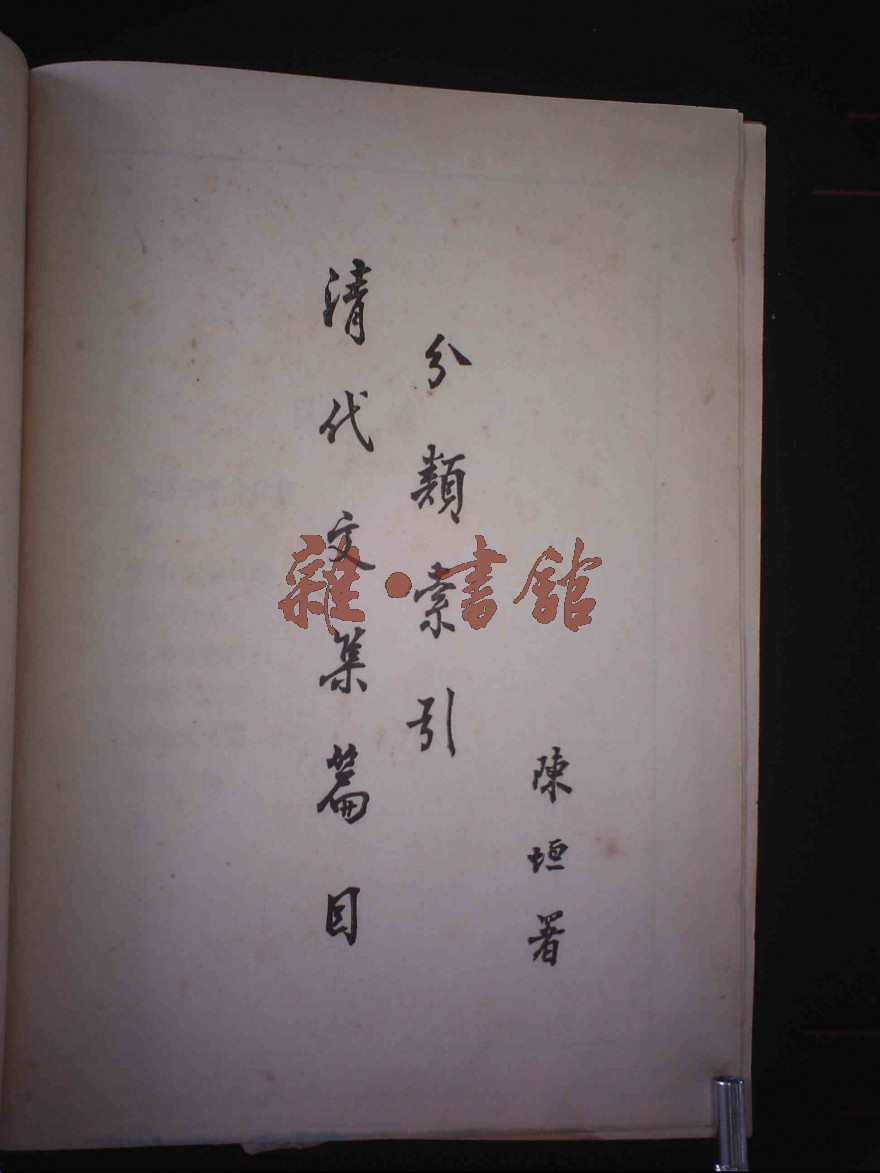 清代文集篇目
分類索引
陳垣署
雜·書館